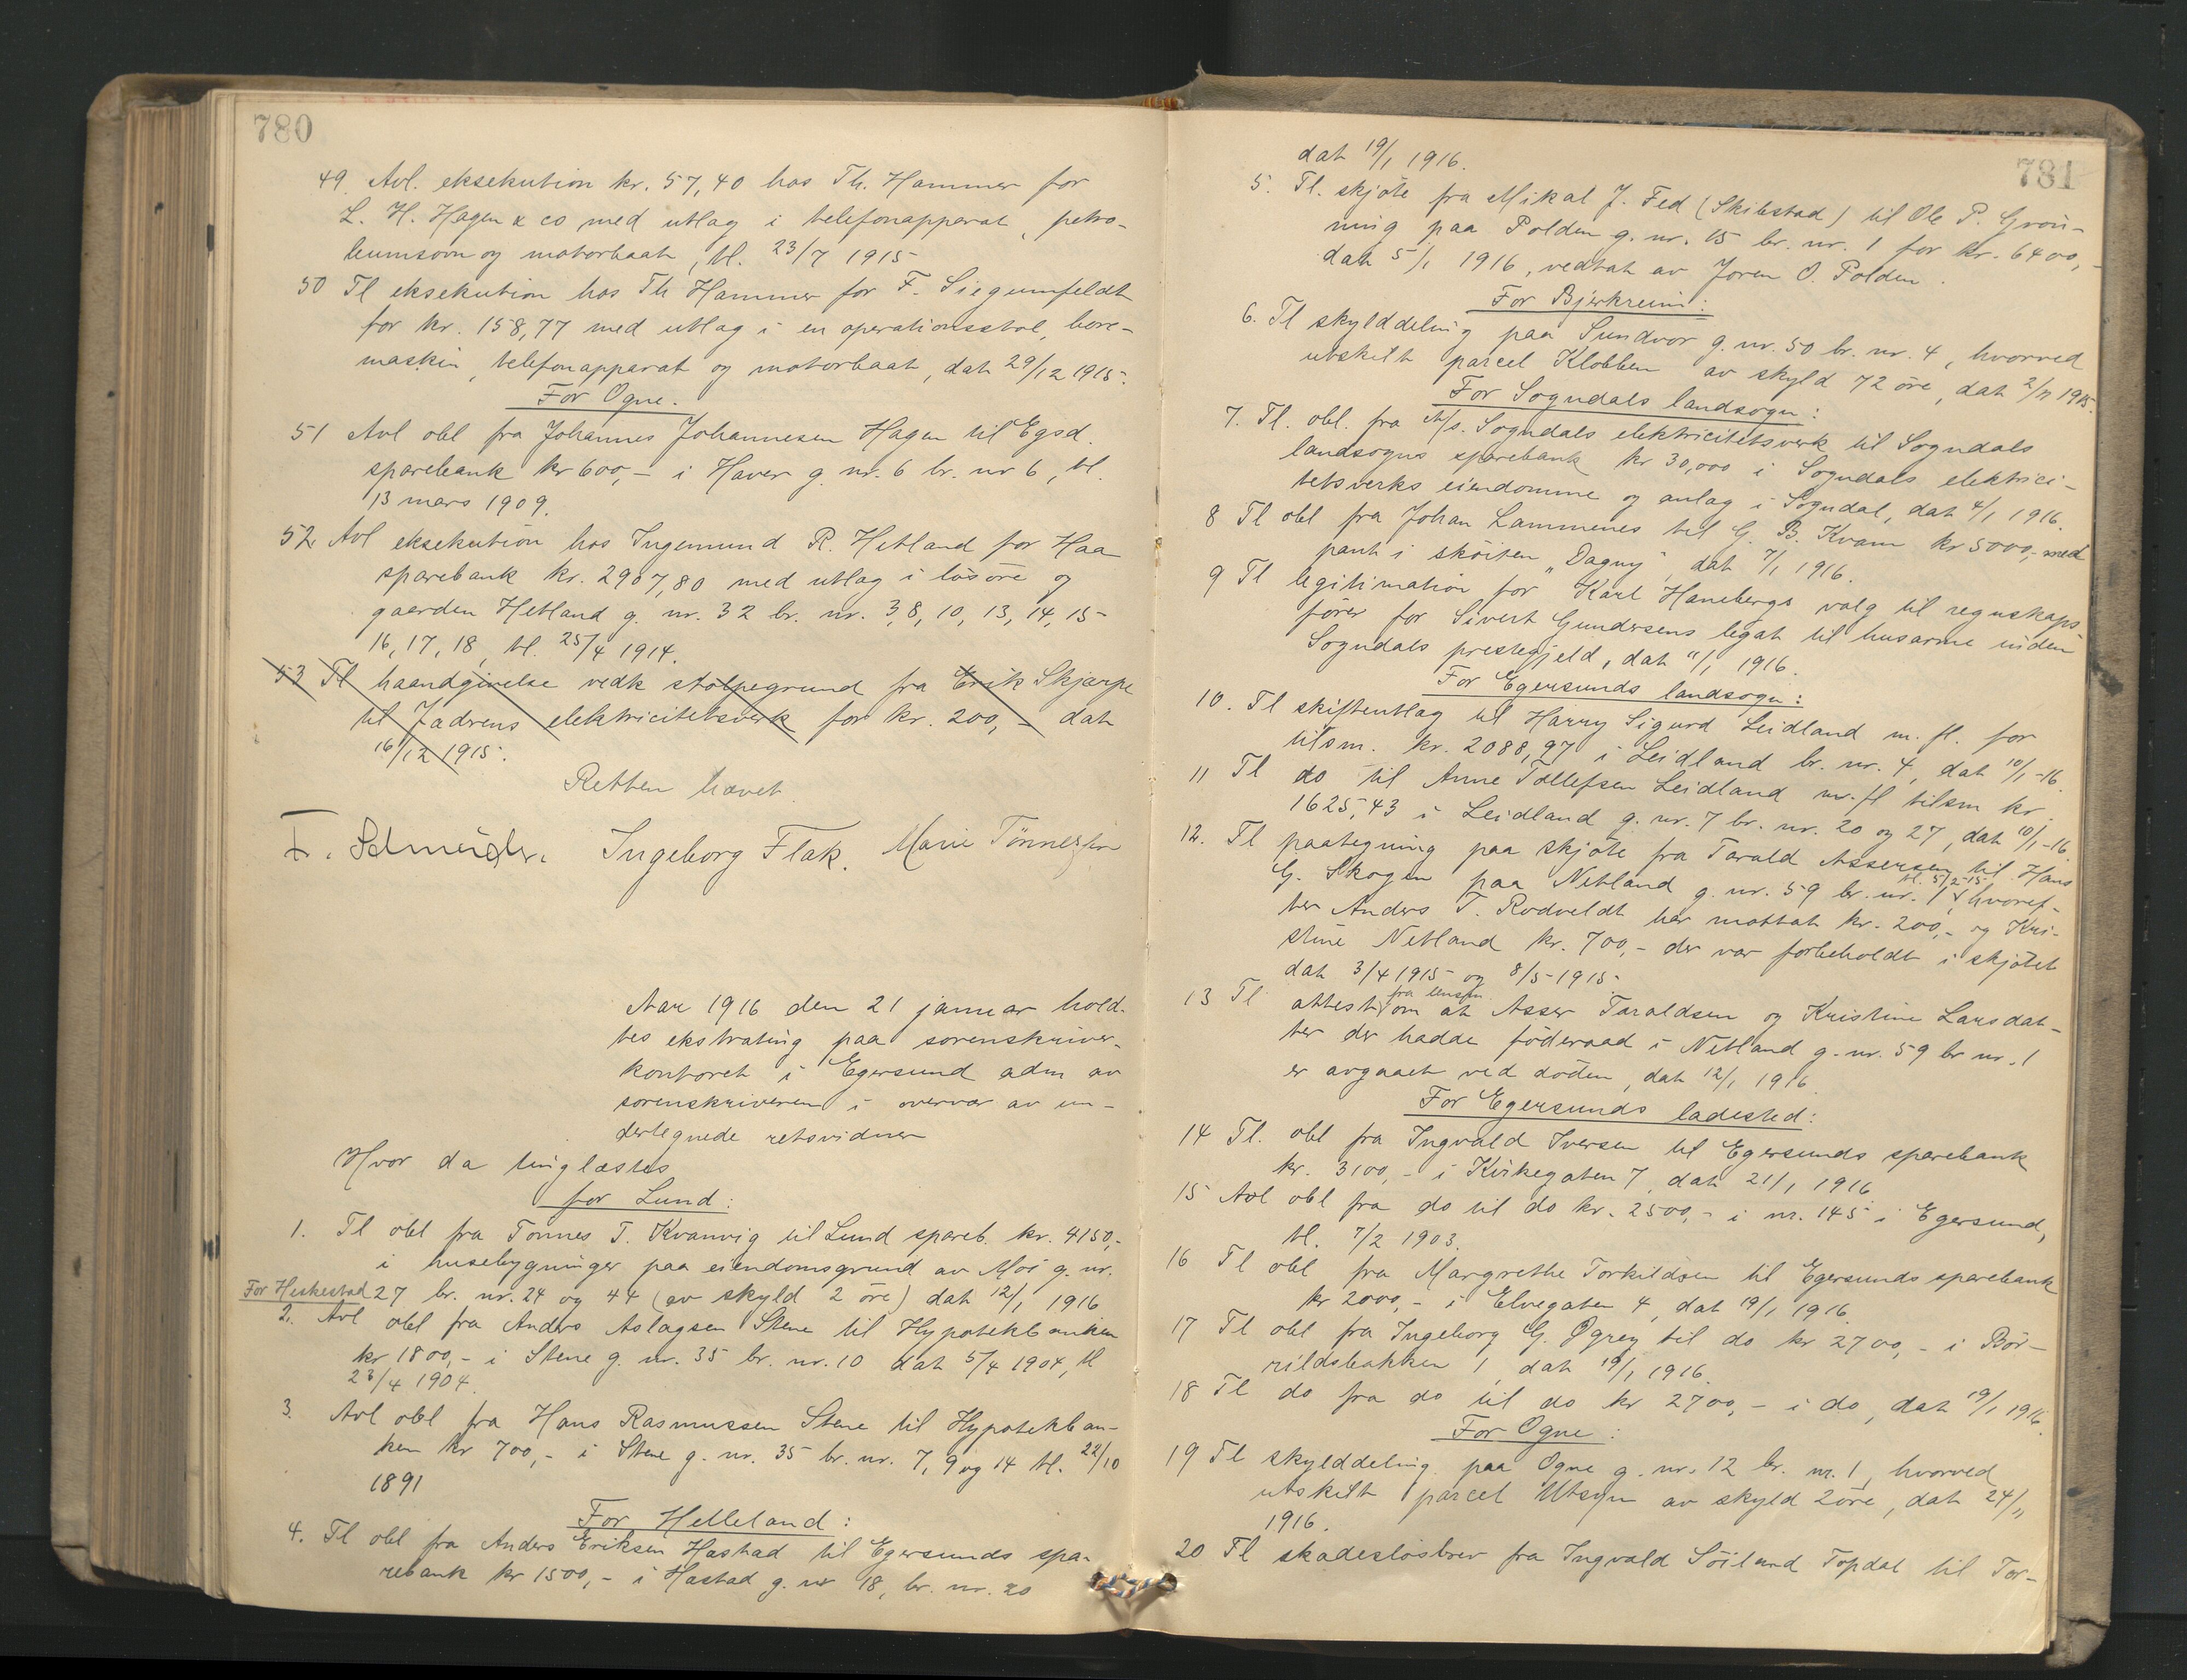 780
49. Avl. eksekution kr. 57,40 hos Th. Hammer for
L. H. Hagen & co med utlag i telefonapparat, petro-
leumsovn og motorbaat, tl. 23/7 1915
50 Tl eksekution hos Th Hammer for F. Siegumfeldt
for kr. 158,77 med utlag i en operationsstol, bore-
maskin, telefonapparat og motorbaat, dat 29/12 1915.
For Ogne.
51 Avl obl fra Johannes Johannesen Hagen til Egsd.
sparebank kr 600,- i Haver g. nr. 6 br. nr 6, tl.
13 mars 1909.
52. Avl eksekution hos Ingemund R. Hetland for Haa
sparebank kr. 2907,80 med utlag i løsøre og
gaarden Hetland g. nr. 32 br. nr. 3, 8, 10, 13, 14, 15
16, 17, 18, tl. 25/4 1914.
53 Tl haandgivelse vedk stolpegrund fra Erik Skjærpe
til Jædrens elektricitetsverk for kr. 200,- dat
16/12 1915.
Retten hævet.
F. Schneider. Ingeborg Flak. Marie Tønnessen
Aar 1916 den 21 januar hold-
tes ekstrating paa sorenskriver-
kontoret i Egersund adm av
sorenskriveren i overvær av un-
dertegnede retsvidner
Hvor da tinglæstes
for Lund:
1. Tl obl fra Tønnes T. Kvanvig til Lund spareb. kr. 4150,-
i husebygninger paa eiendomsgrund av Moi g. nr.
For Heskestad 27 br. nr. 24 og 44 (av skyld 2 øre) dat 12/1 1916
2. Avl obl fra Anders Aslagsen Stene til Hypotekbanken
kr 1800,- i Stene g. nr. 35 br. nr. 10 dat 5/4 1904, tl
23/4 1904.
3. Avl obl fra Hans Rasmussen Stene til Hypotekban-
ken kr 700,- i Stene g. nr. 35 br. nr. 7, 9 og 14 tl. 22/10
1891
For Helleland:
4. Tl obl fra Anders Eriksen Hastad til Egersunds spa-
rebank kr 1500,- i Hastad g. nr 18, br. nr. 20
781
dat 19/1 1916.
5. Tl. skjøte fra Mikal J. Fed (Skibstad) til Ole P. Grøn-
ning paa Polden g. nr. 15 br. nr. 1 for kr. 6400,-
dat 5/1 1916, vedtat av Joren O. Polden.
For Bjerkreim:
6. Tl skylddeling paa Sundvor g. nr. 50 br. nr. 4, hvorved
utskilt parcel Klobben av skyld 72 øre, dat 2/11 1915.
For Sogndals landsogn:
7. Tl. obl. fra A/s. Sogndals elektricitetsverk til Sogndals
landsogns sparebank kr 30,000 i Sogndals elektrici-
tetsverks eiendomme og anlag i Sogndal, dat 4/1 1916.
8 Tl obl fra Johan Lammenes til G. B. Kvam kr 5000,- med
pant i skøiten „Dagny", dat 7/1 1916.
9 Tl legitimation for Karl Hanebergs valg til regnskaps
fører for Sivert Gundersens legat til husarme inden
Sogndals prestegjeld, dat 11/1 1916.
For Egersunds landsogn:
10. Tl skifteutlag til Harry Sigurd Leidland m. fl. for
tilsm. kr. 2088,97 i Leidland br. nr. 4, dat 10/1-16.
11 Tl do til Anne Tollefsen Leidland m. fl tilsm kr.
1625,43 i Leidland g. nr. 7 br. nr. 20 og 27, dat 10/1-16.
12. Tl paategning paa skjøte fra Tarald Assersen til Hans
G. Skogen paa Netland g. nr. 59 br. nr. 1, tl. 5/2-15 hvoref-
ter Anders T. Rodveldt har mottat kr. 200,- og Kri-
stine Netland kr. 700,- der var forbeholdt i skjøtet
dat 3/4 1915 og 8/5-1915.
13 Tl attest fra lensm. om at Asser Taraldsen og Kristine Larsdat-
ter der hadde føderaad i Netland g. nr. 59 br nr. 1
er avgaaet ved døden, dat 12/1 1916
For Egersunds ladested:
14 Tl. obl fra Ingvald Iversen til Egersunds sparebank
kr. 3100,- i Kirkegaten 7, dat 21/1 1916
15 Avl obl fra do til do kr. 2500,- i nr. 145 i Egersund,
tl. 7/2 1903.
16 Tl obl fra Margrethe Torkildsen til Egersunds sparebank
kr 2000,- i Elvegaten 4, dat 19/1 1916.
17 Tl obl fra Ingeborg G. Øgrey til do kr 2700,- i Bør-
rildsbakken 1, dat 19/1 1916.
18 Tl do fra do til do kr 2700,- i do, dat 19/1 1916.
For Ogne:
19 Tl skylddeling paa Ogne g. nr. 12 br. nr. 1, hvorved
utskilt parcel Utsyn av skyld 2 øre, dat 24/11
1916.
20 Tl skadesløsbrev fra Ingvald Søiland Topdal til Tor-